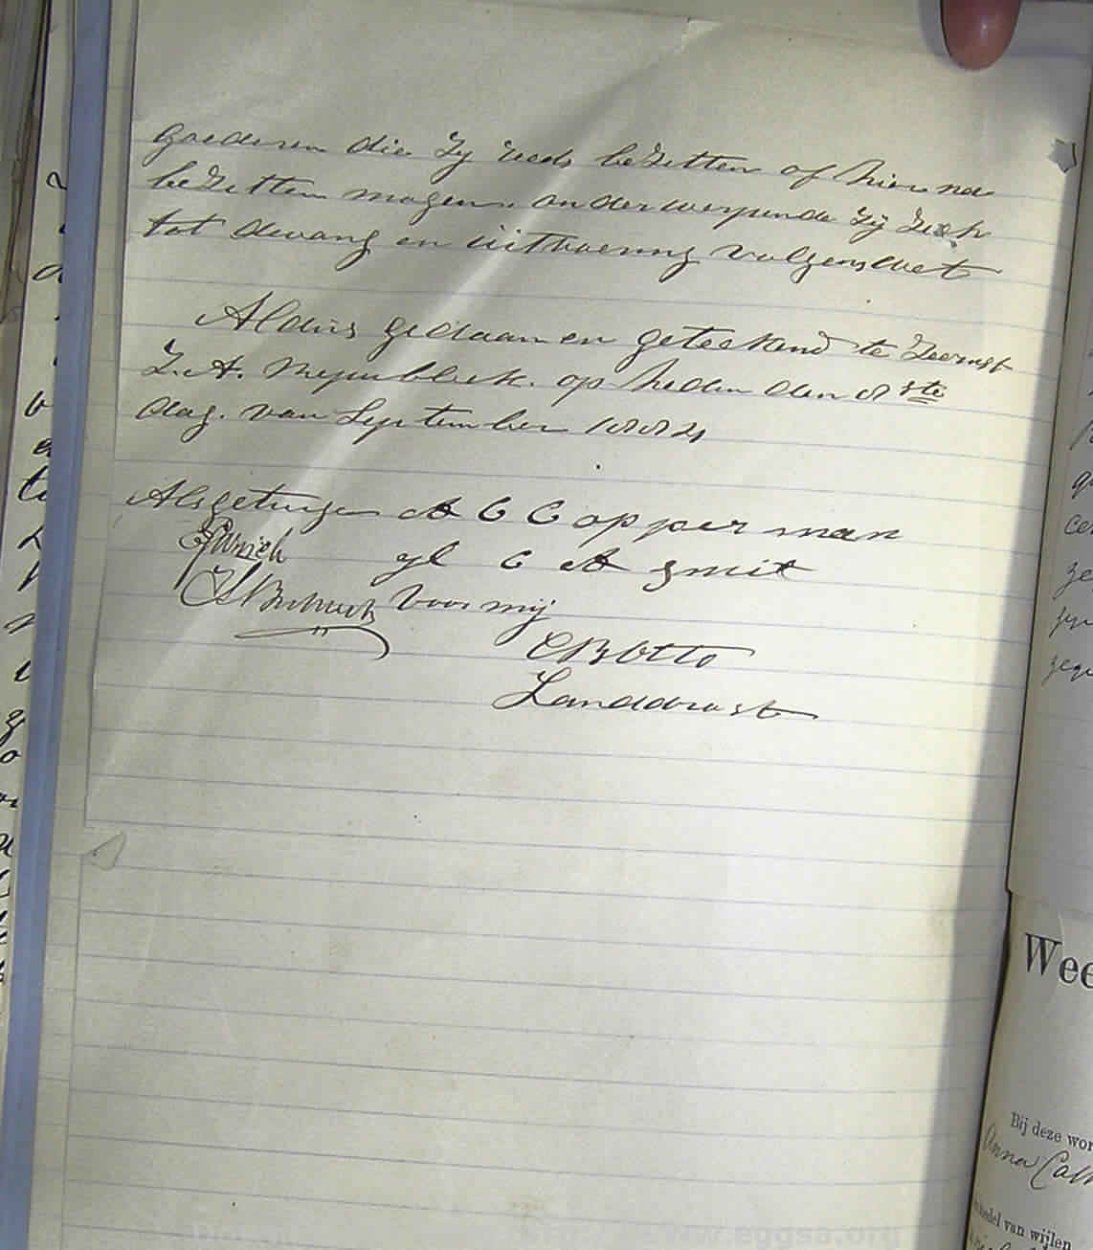 goederen die Zy reeds bezitten of hierna
bezitten mogen. onderwerpende Zij Zich
tot dwang en uitvoering volgens wet
Aldus gedaan en geteekend te Zeerust
Z. A. Republiek. op heden den 8ste
dag. van September 1884
Als getuigen A C C opperman
gl C A Smit
Voor mij
C B Otto
Landdrost
Wee
Bij deze wor
Anna Cath
van wijlen
www.eggsa.org